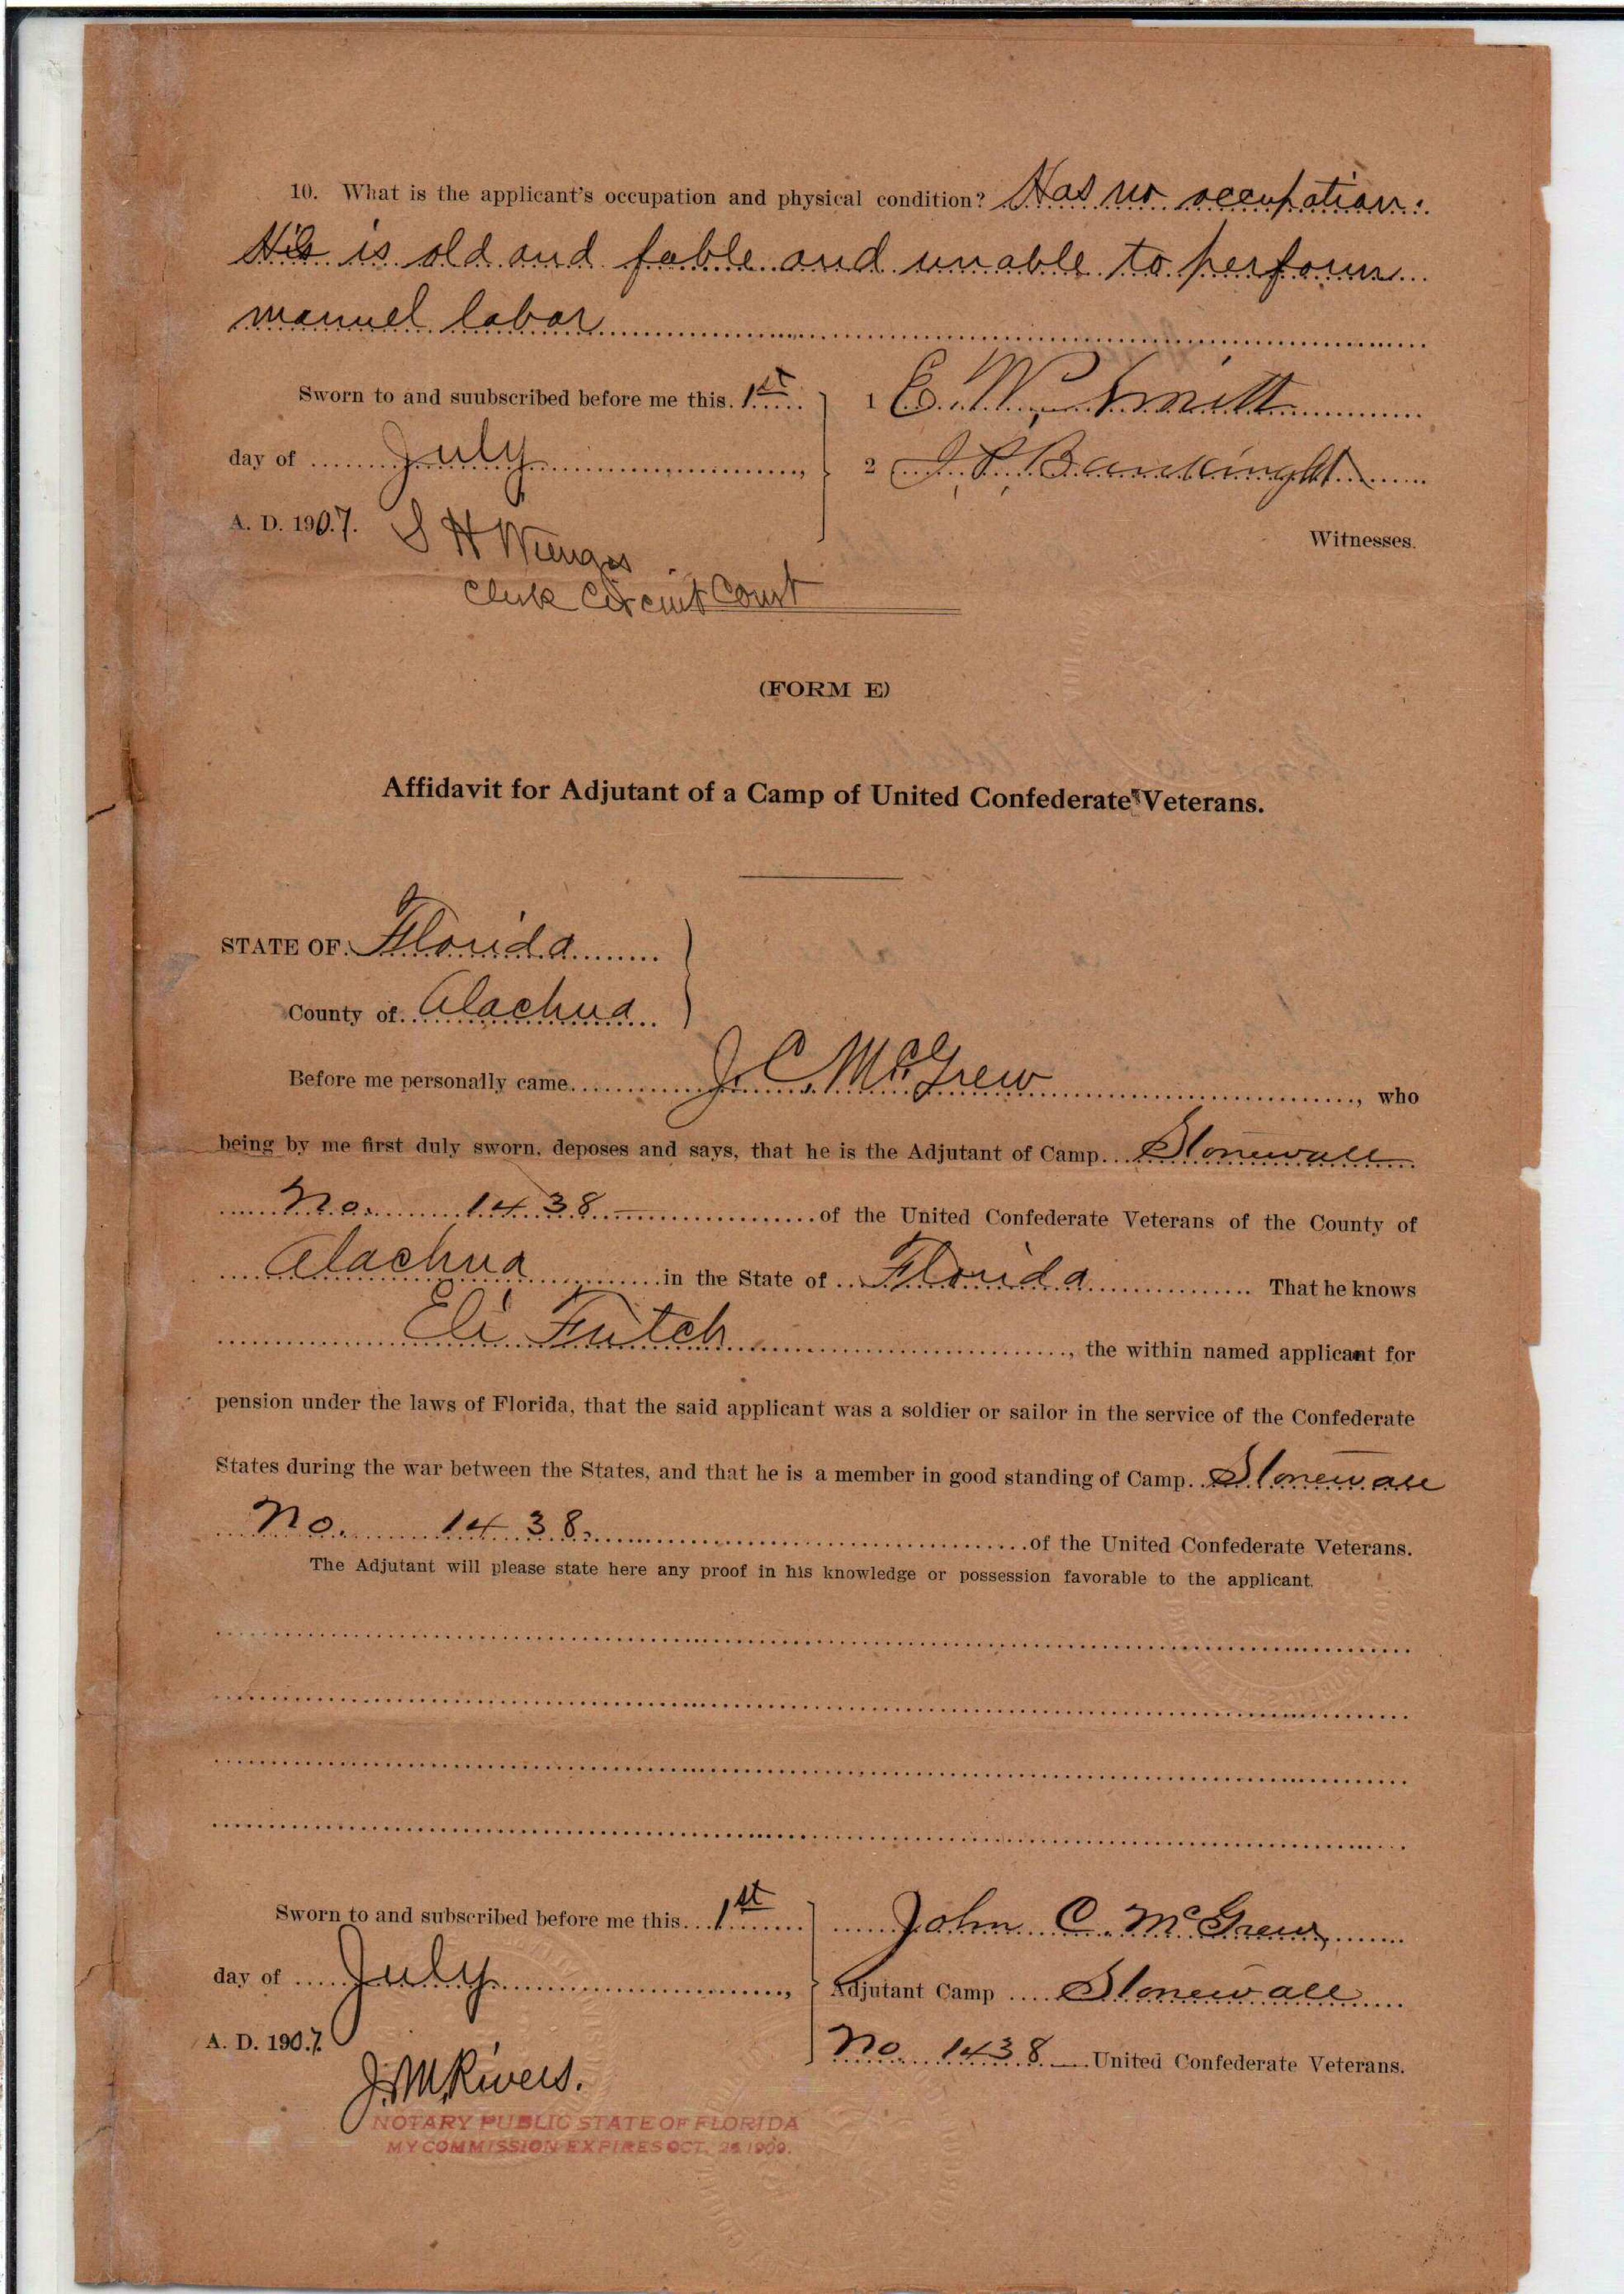 10. What is the applicant's occupation and physical condition? Has no occupation.
His is old and feble and unable to perform
manuel labor
Sworn to and suubscribed before me this 1st
1 E. W. Smith
day of July,
2 J. P.
A. D. 1907.
Witnesses.
S H Wienges
Clerk Circuit Court
(FORM E)
Affidavit for Adjutant of a Camp of United Confederate Veterans.
STATE OF Florida
County of Alachua
Before me personally came J. C. McGrew, who
being by me first duly sworn, deposes and says, that he is the Adjutant of Camp Stonewall
No. 1438 of the United Confederate Veterans of the County of
Alachua in the State of Florida. That he knows
Eli Futch, the within named applicant for
pension under the laws of Florida, that the said applicant was a soldier or sailor in the service of the Confederate
States during the war between the States, and that he is a member in good standing of Camp Stonewall
No. 1438. of the United Confederate Veterans.
The Adjutant will please state here any proof in his knowledge or possession favorable to the applicant.
Sworn to and subscribed before me this 1st
John C. McGrew,
day of July,
Adjutant Camp Stonewall
A. D. 1907.
No. 1438 United Confederate Veterans.
J. M. Rivers.
NOTARY PUBLIC STATE OF FLORIDA
MY COMMISSION EXPIRES OCT. 26 1909.